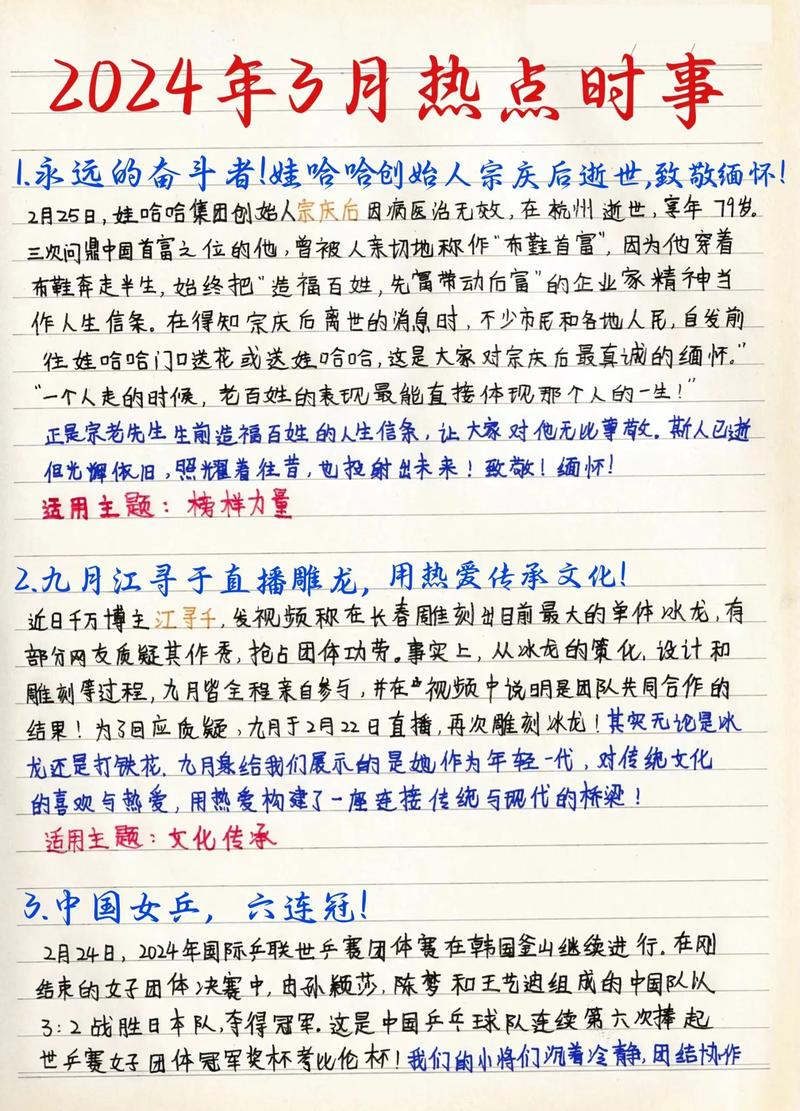 2024年3月热点时事
1.永远的奋斗者!娃哈哈创始人宗庆后逝世,致敬缅怀!
2月25日,娃哈哈集团创始人宗庆后因病医治无效,在杭州逝世,享年79岁。
三次问鼎中国首富之位的他,曾被人亲切地称作“布鞋首富”,因为他穿着
布鞋奔走半生,始终把“造福百姓,先富带动后富”的企业家精神当
作人生信条。在得知宗庆后离世的消息时,不少市民和各地人民,自发前
往娃哈哈门口送花或送娃哈哈,这是大家对宗庆后最真诚的缅怀。”
“一个人走的时候,老百姓的表现最能直接体现那个人的一生!”
正是宗老先生生前造福百姓的人生信条,让大家对他无比尊敬。斯人已逝
但光辉依旧,照耀着往昔,也投射出未来!致敬!缅怀!
适用主题:榜样力量
2.九月江寻于直播雕龙,用热爱传承文化!
近日千万博主江寻千,发视频称在长春雕刻出目前最大的单体冰龙,有
部分网友质疑其作秀,抢占团体功劳。事实上,从冰龙的策化、设计和
雕刻等过程,九月皆全程亲自参与,并在视频中说明是团队共同合作的
结果!为了回应质疑,九月于2月22日直播,再次雕刻冰龙!其实无论是冰
龙还是打铁花,九月集给我们展示的是她作为年轻一代,对传统文化
的喜欢与热爱,用热爱构建了一座连接传统与现代的桥梁!
适用主题:文化传承
3.中国女乒,六连冠!
2月24日,2024年国际乒联世乒赛团体赛在韩国釜山继续进行。在刚
结束的女子团体决赛中,由孙颖莎,陈梦和王艺迪组成的中国队以
3:2战胜日本队,夺得冠军。这是中国乒乓球队连续第六次捧起
世乒赛女子团体冠军奖杯考比伦杯!我们的小将们沉着冷静,团结协作